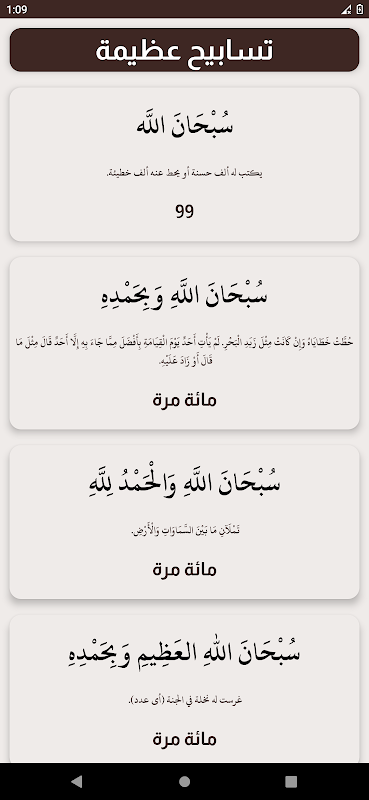 1:09
تسابيح عظيمة
سُبْحَانَ اللَّه
يكتب له ألف حسنة أو يحط عنه ألف خطيئة.
99
سُبْحَانَ اللَّهِ وَبِحَمْدِهِ
حُطَّتْ خَطَايَاهُ وَإِنْ كَانَتْ مِثْلَ زَبَدِ الْبَحْرِ. لَمْ يَأْتِ أَحَدٌ يَوْمَ الْقِيَامَةِ بِأَفْضَلَ مِمَّا جَاءَ بِهِ إِلَّا أَحَدٌ قَالَ مِثْلَ مَا
قَالَ أَوْ زَادَ عَلَيْهِ.
مائة مرة
سُبْحَانَ اللَّهِ وَالْحَمْدُ لِلَّهِ
تَمْلَآَنِ مَا بَيْنَ السَّمَاوَاتِ وَالْأَرْضِ.
مائة مرة
سُبْحَانَ اللهِ العَظِيمِ وَبِحَمْدِهِ
غرست له نخلة في الجنة (أى عدد).
مائة مرة